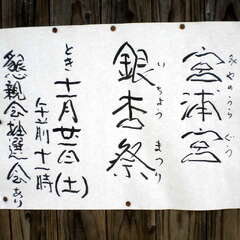 みやのうら ぐう
宮浦宮
いちょう まつり
銀杏祭
とき 十一月廿二日(土)
午前十一時
懇親会抽選会あり